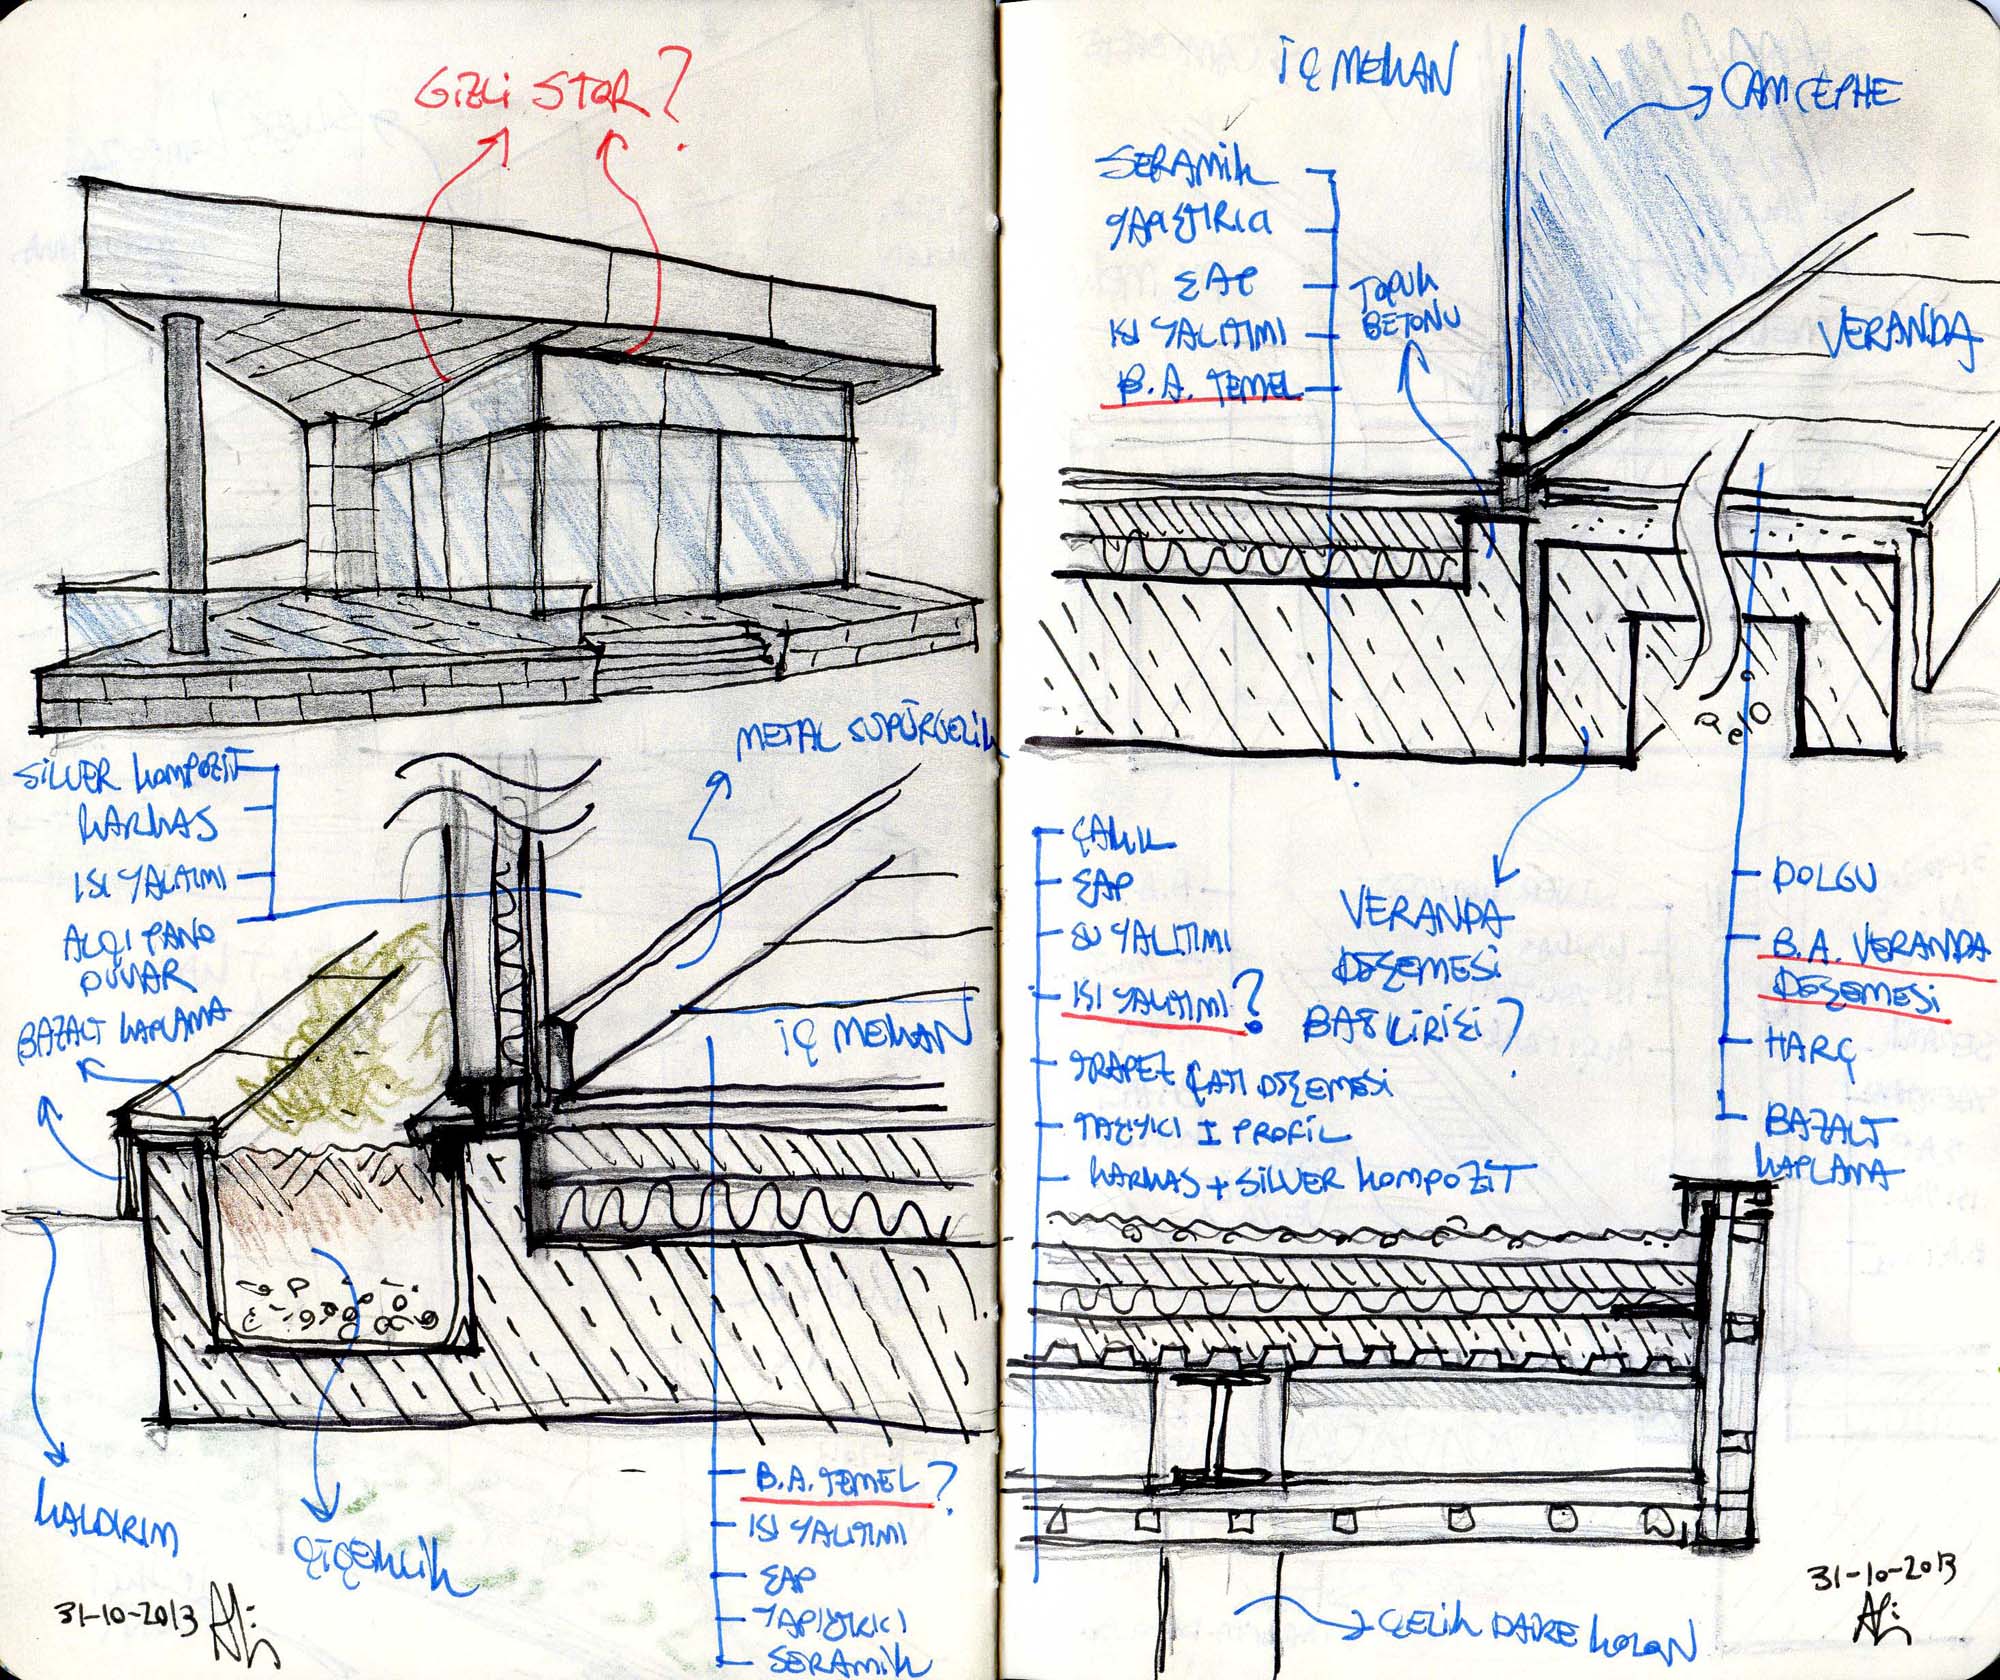 GİZLİ STOR?
METAL SÜPÜRGELİK
SİLVER KOMPOZİT
KARKAS
ISI YALITIMI
ALÇI PANO
DUVAR
BAZALT KAPLAMA
İÇ MEKAN
KALDIRIM
ÇİÇEKLİK
B.A. TEMEL?
ISI YALITIMI
ŞAP
YAPIŞTIRICI
SERAMİK
31-10-2013
İÇ MEKAN
CAM CEPHE
SERAMİK
YAPIŞTIRICI
ŞAP
ISI YALITIMI
B.A. TEMEL
TOPUK
BETONU
VERANDA
ÇAKIL
ŞAP
SU YALITIMI
ISI YALITIMI?
TRAPEZ ÇATI DÖŞEMESİ
TAŞIYICI I PROFİL
KARKAS + SİLVER KOMPOZİT
VERANDA
DÖŞEMESİ
BAŞ KİRİŞİ?
DOLGU
B.A. VERANDA
DÖŞEMESİ
HARÇ
BAZALT
KAPLAMA
ÇELİK DAİRE KOLON
31-10-2013